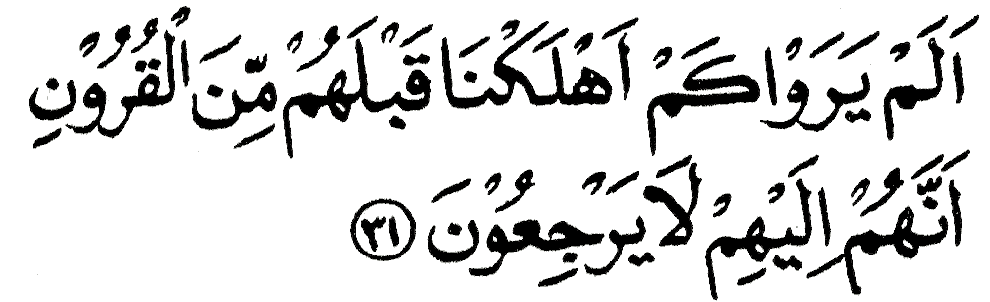 اَلَمْ يَرَوْا كَمْ اَهْلَكْنَا قَبْلَهُمْ مِّنَ الْقُرُوْنِ
اَنَّهُمْ اِلَيْهِمْ لَا يَرْجِعُوْنَ ۝٣١